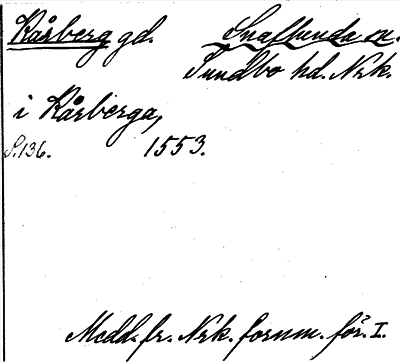 Kårberg gd. Snaflunda sn.
Sundbo hd. Nrk.
i Kårberga,
S.136. 1553.
Medd. fr. Nrk. fornm. för. I.